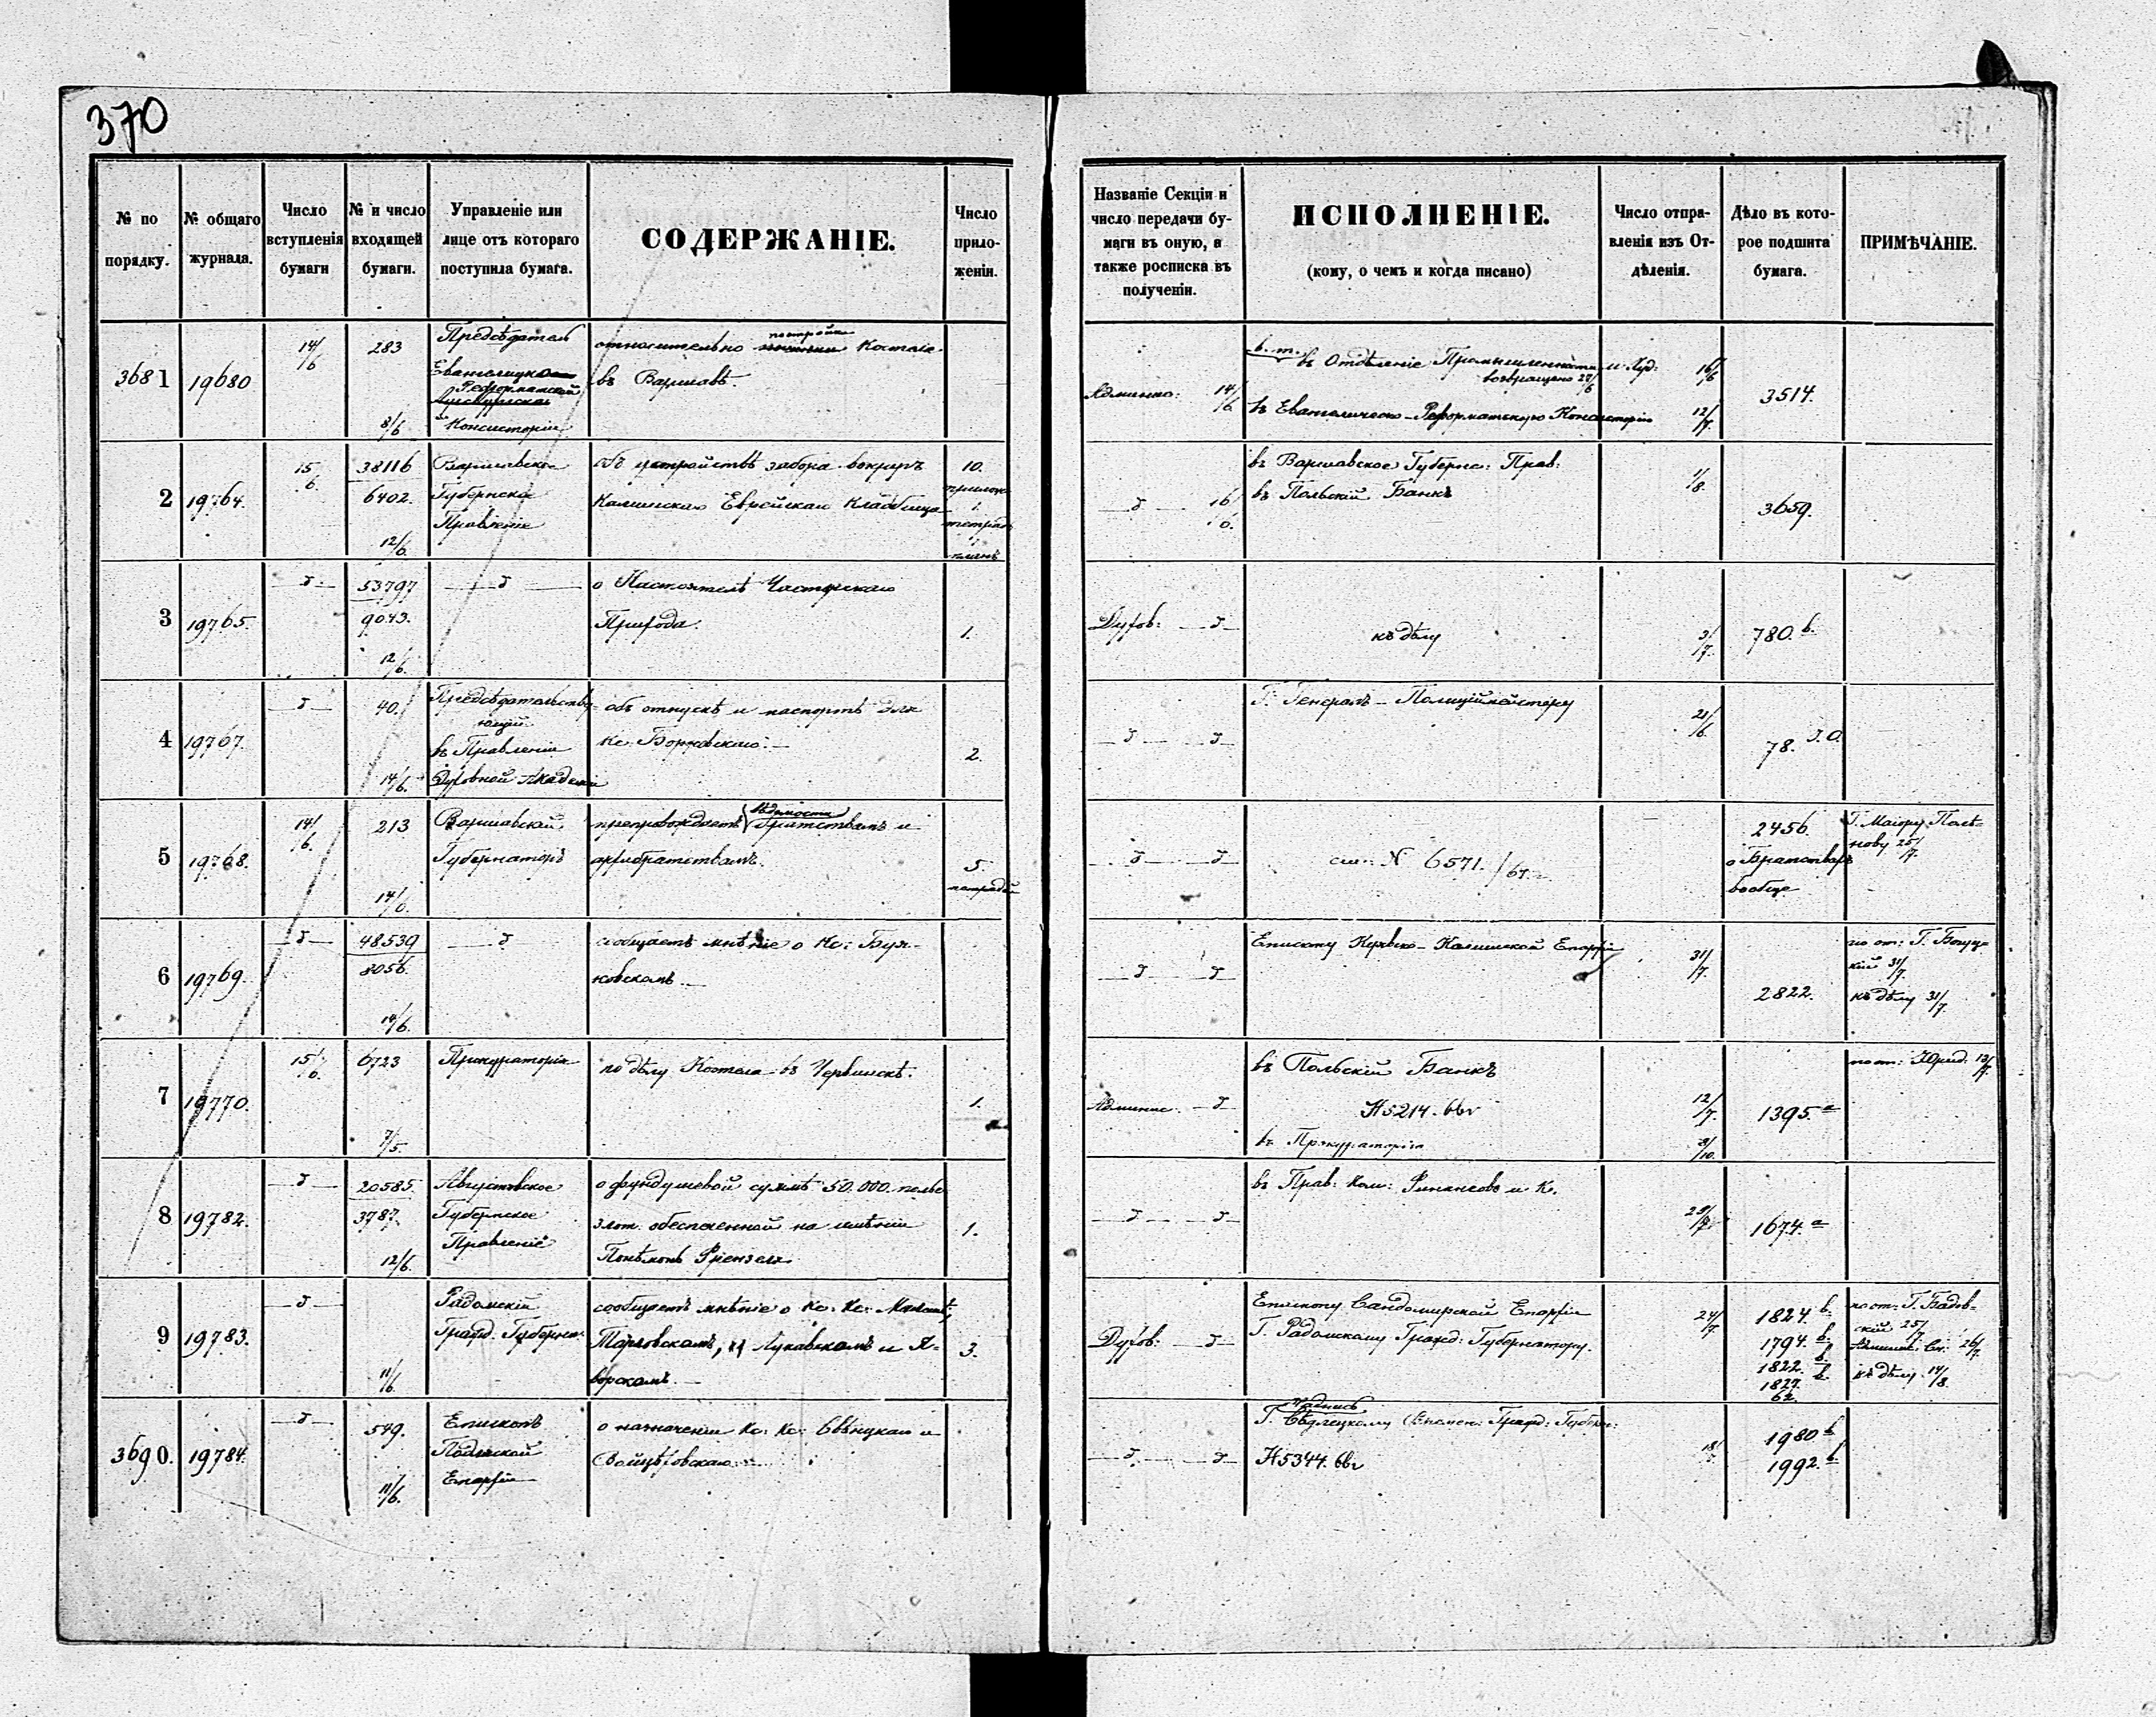 370
№ по порядку.
№ общаго журнала.
Число вступленія бумаги
№ и число входящей бумаги.
Управленіе или лице отъ котораго поступила бумага.
СОДЕРЖАНІЕ.
Число приложеніи.
Названіе Секціи и число передачи бумаги въ оную, а также росписка въ полученіи.
ИСПОЛНЕНІЕ.
(кому, о чемъ и когда писано)
Число отправленія изъ Отдѣленія.
Дѣло въ которое подшита бумага.
ПРИМѢЧАНІЕ.
3681
19680
14/6
283
8/6
Предсѣдатель
Евангелицко
Реформатской
Консисторіи
относительно постройки Костела
въ Варшавѣ.
14/6
въ Отдѣленіе Промышленности и Худ:
возвращено 27/6
въ Евангелическо-Реформатскую Консисторію
16/6
12/7
3514.
2
19764.
15/6.
38116
6402.
12/6.
Варшавское
Губернское
Правленіе
объ устройствѣ забора вокругъ
Калишскаго Еврейскаго Кладбища
10.
1.
планъ
16/6.
въ Варшавское Губерн: Прав:
въ Польскій Банкъ
1/8.
3659.
3
19765.
53797
9043.
12/6.
о Настоятелѣ
Прихода.
1.
Духов:
къ дѣлу
3/7.
780. b.
4
19767.
40.
14/6.
Предсѣдательствующій
въ Правленіи
Духовной Академіи
объ отпускѣ и паспортѣ для
Кс. Борковскаго.
2.
Г. Генералъ-Полицiймейстеру
21/6.
78.
5
19768.
14/6.
213
14/6.
Варшавскій
Губернаторъ
препровождаетъ вѣдомости Братствамъ и
архибратствамъ.
5.
тетрадей
см. N 6571./67.
2456.
о Братствахъ
вообще
Г. Маіору Полѣнову 25/7.
6
19769.
48539
8056.
14/6.
сообщаетъ мнѣніе о Кс:
ковскомъ.
Епископу Куявско-Калишской Епархіи
31/7.
2822.
31/7.
къ дѣлу 31/7.
7
19770.
15/6.
6723
7/5.
Прокураторія
по дѣлу Костела въ Червинскѣ.
1.
въ Польскій Банкъ
N5214.
въ Прокураторію
12/7.
1395. a
по от: Юрид: 12/7.
8
19782.
20585.
3787.
12/6.
Августовское
Губернское
Правленіе
о фундушевой суммѣ 50.000. польс
злот. обезпеченной на имѣніи
1.
въ Прав: Ком: Финансовъ и К.
1674. a
9
19783.
11/6.
Радомскій
Гражд. Губернат.
сообщаетъ мнѣніе о Кс: Кс:
Тарловскомъ, Лукавскомъ и Яворскомъ.
3.
Духов:
Епископу Сандомирской Епархіи
Г. Радомскому Гражд: Губернатору.
24/7.
1824. b.
1794. b.
1822. b.
1827. b.
62.
25/7.
26/7.
къ дѣлу 14/8.
3690.
19784.
549.
11/6.
Епископъ
Подляской
Епархіи
о назначеніи Кс: Кс: Свѣнцкаго и
Войцѣховскаго.
Надпись
Г. Сѣдлецкому Гражд: Губерн:
N5344.
18/
1980 b
1992. b.